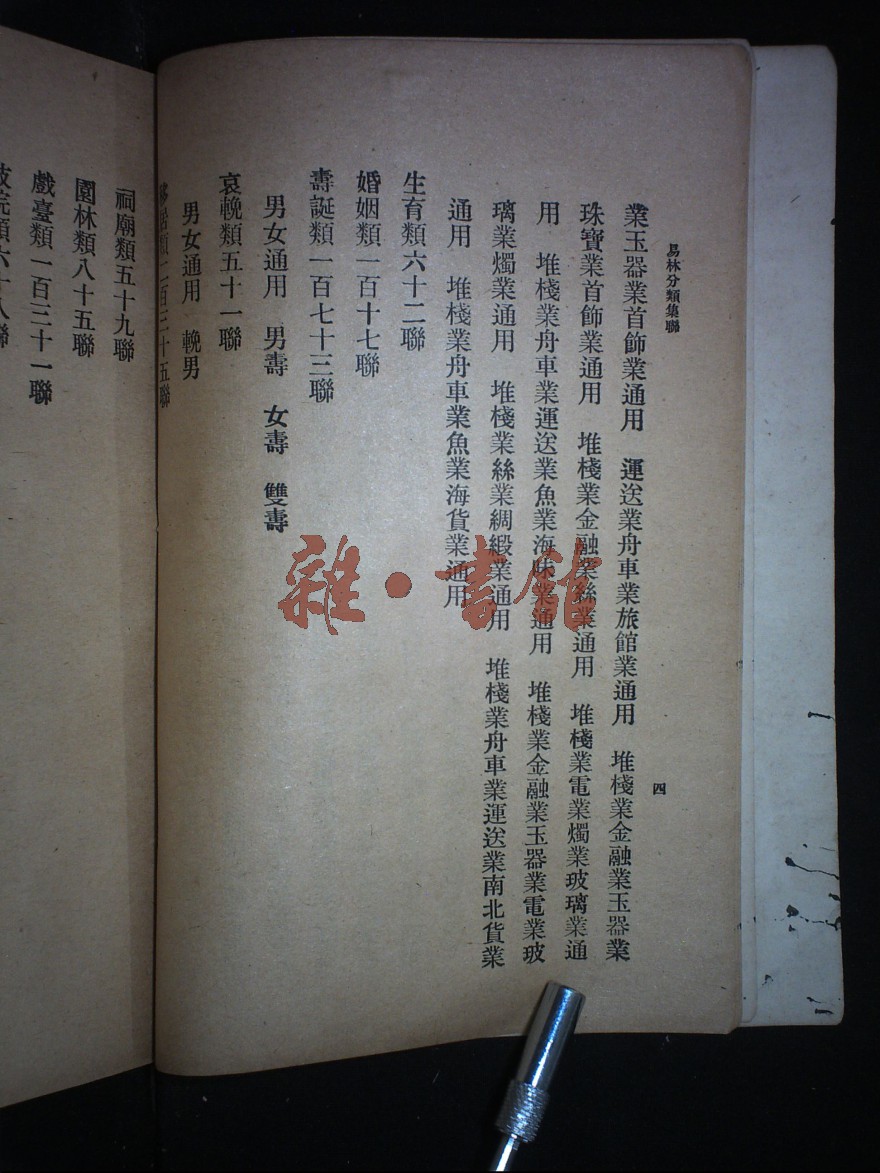 易林分類集聯
四
業玉器業首飾業通用　運送業舟車業旅館業通用　堆棧業金融業玉器業
珠寶業首飾業通用　堆棧業金融業絲業通用　堆棧業電業燭業玻璃業通
用　堆棧業舟車業運送業魚業海味業通用　堆棧業金融業玉器業電業玻
璃業燭業通用　堆棧業絲業綢緞業通用　堆棧業舟車業運送業南北貨業
通用　堆棧業舟車業魚業海貨業通用
生育類六十二聯
婚姻類一百十七聯
壽誕類一百七十三聯
男女通用　男壽　女壽　雙壽
哀輓類五十一聯
男女通用　輓男
類一百三十五聯
祠廟類五十九聯
園林類八十五聯
戲臺類一百三十一聯
院類六十八聯
雜·書館